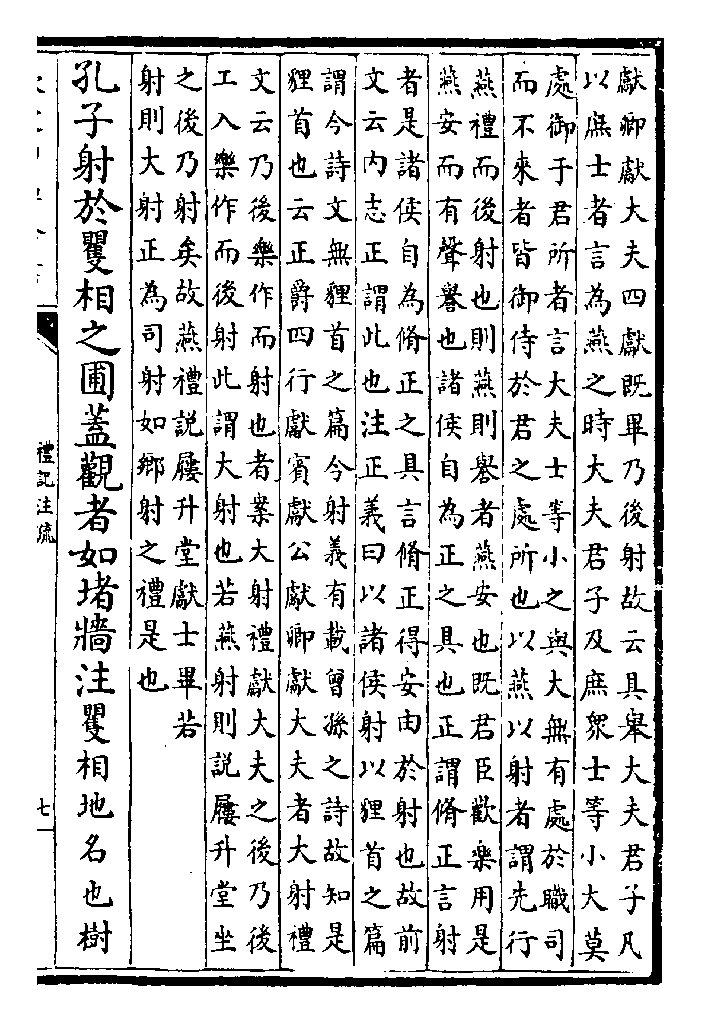 獻卿獻大夫四獻既畢乃後射故云具舉大夫君子凡
以庶士者言為燕之時大夫君子及庶眾士等小大莫
處御于君所者言大夫士等小之與大無有處於職司
而不來者皆御侍於君之處所也以燕以射者謂先行
燕禮而後射也則燕則譽者燕安也既君臣歡樂用是
燕安而有聲譽也諸侯自為正之具也正謂脩正言射
者是諸侯自為脩正之具言脩正得安由於射也故前
文云内志正謂此也注正義曰以諸侯射以貍首之篇
謂今詩文無貍首之篇今射義有載曾孫之詩故知是
貍首也云正爵四行獻賓獻公獻卿獻大夫者大射禮
文云乃後樂作而射也者案大射禮獻大夫之後乃後
工入樂作而後射此謂大射也若燕射則説屨升堂坐
之後乃射矣故燕禮説屨升堂獻士畢若
射則大射正為司射如鄉射之禮是也
孔子射於矍相之圃蓋觀者如堵牆注矍相地名也樹
禮記注疏
七